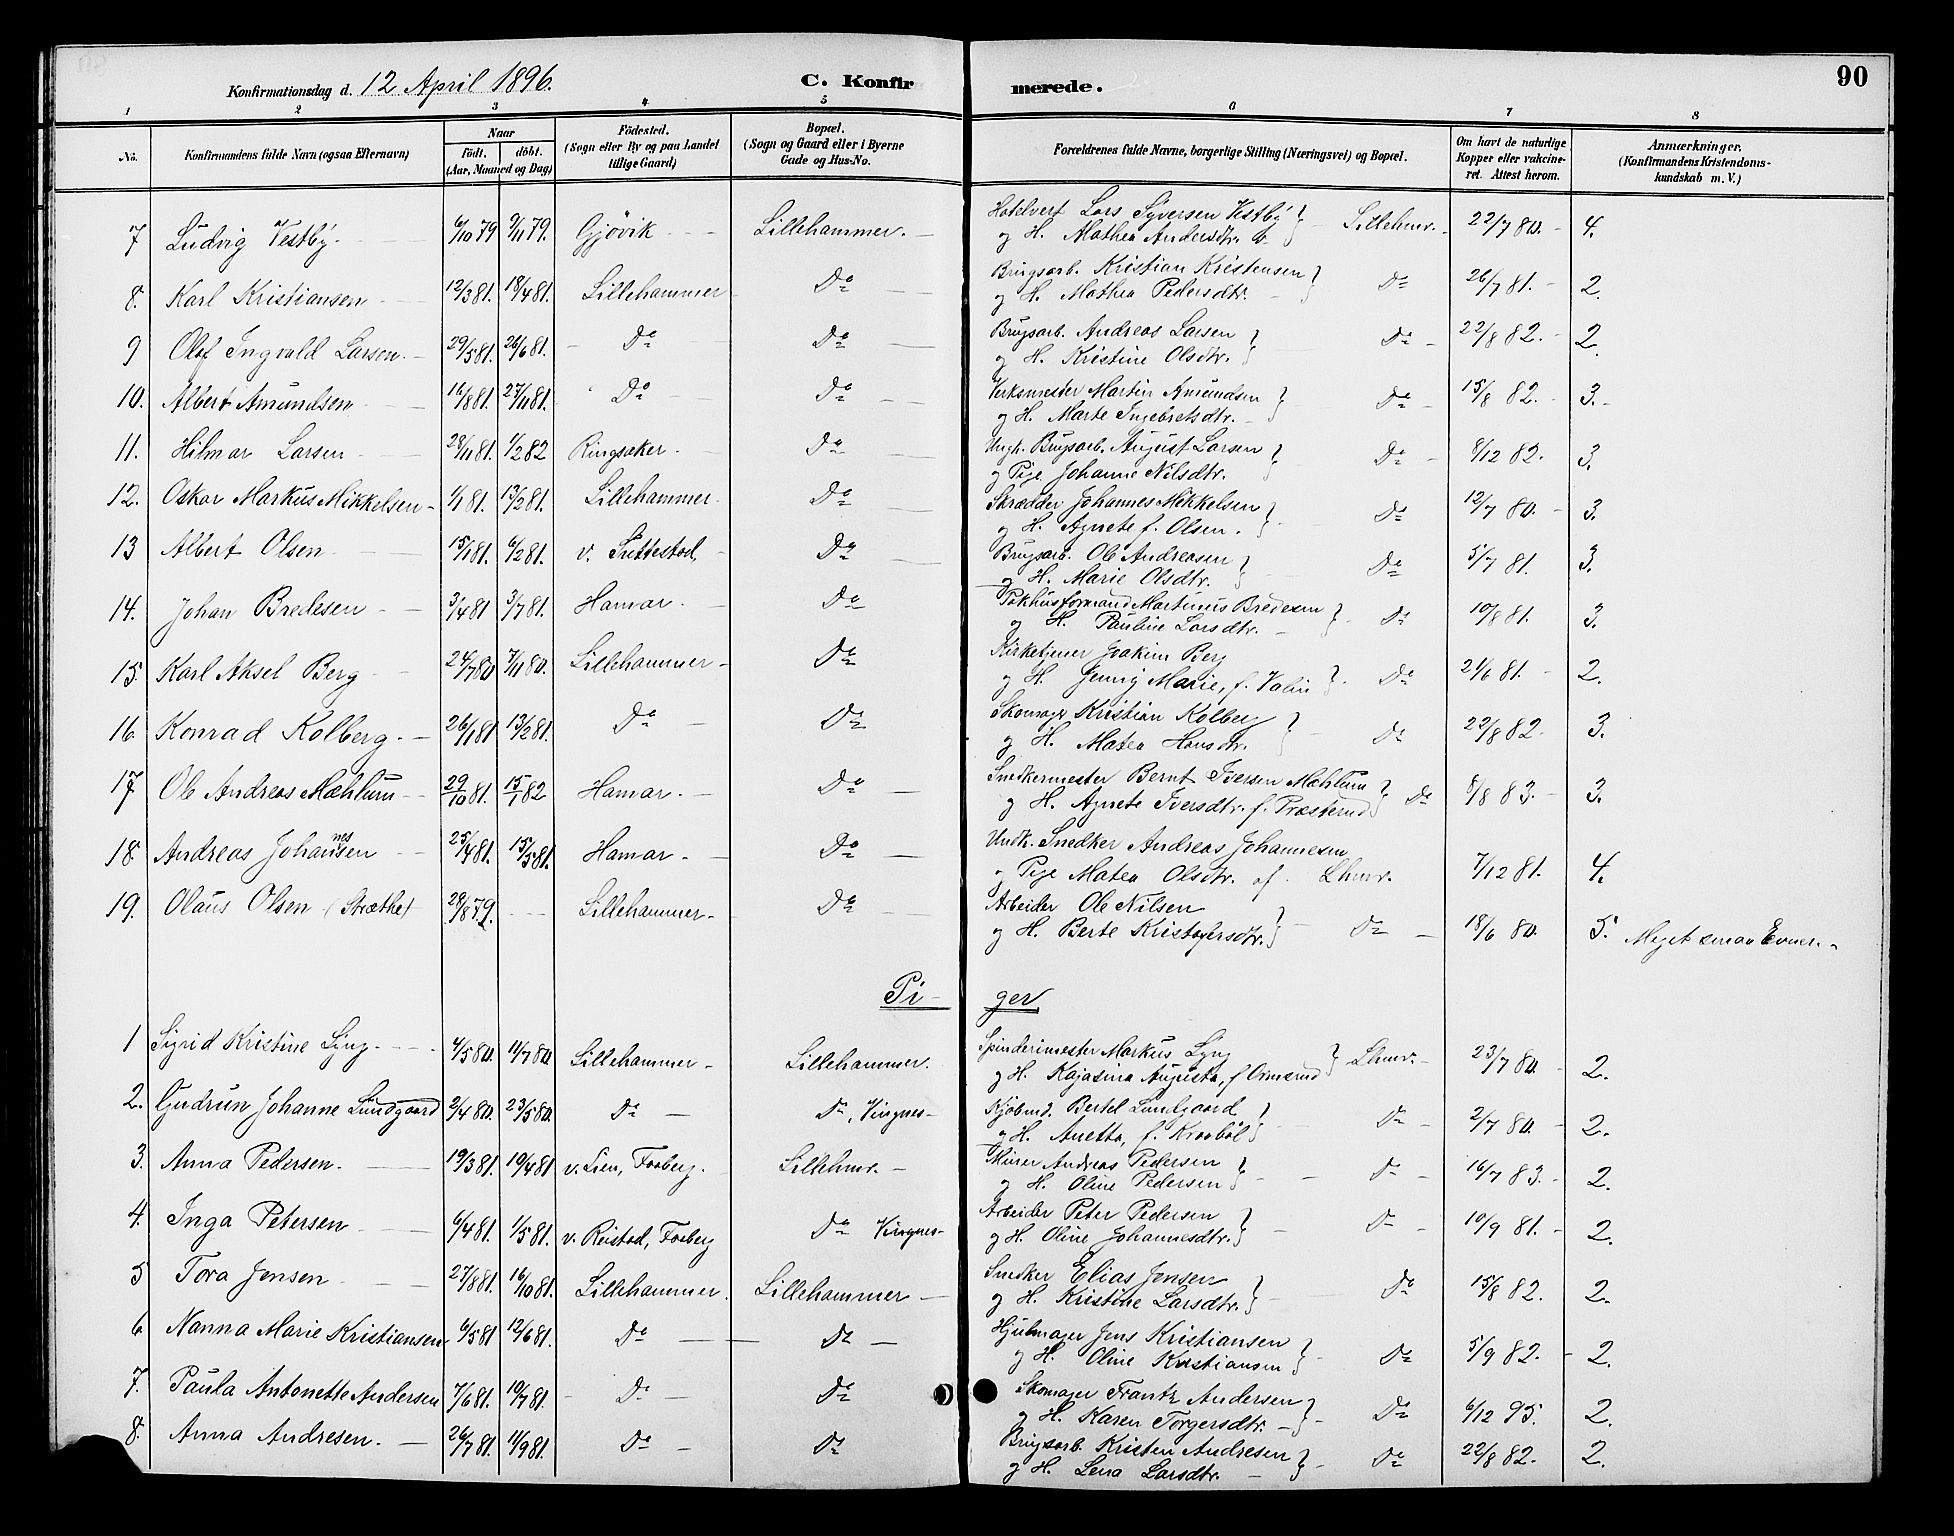 Konfirmationsdag d. 12. April 1896. C. Konfir merede. 90
1 2 3 4 5 6 7 8
No. Konfirmandens fulde Navn (ogsaa Efternavn) Naar Födt. döbt. (Aar, Maaned og Dag) Födested. (Sogn eller By og paa Landet tillige Gaard) Bopæl. (Sogn og Gaard eller i Byerne Gade og Hus-No. Forældrenes fulde Navne, borgerlige Stilling (Næringsvei) og Bopæl. Om havt de naturlige Kopper eller vakcineret. Attest herom. Anmærkninger. (Konfirmandens Kristendomskundskab m. V.)
7 Ludvig Vestby. 6/10 79 9/11 79. Gjövik Lillehammer. Hotelvert Lars Syversen Vestby
og H. Mathea Andersdtr. Lillehmr. 22/7 80. 4.
8. Karl Kristiansen 12/3 81. 18/4 81. Lillehammer Do Brugsarb. Kristian Kristensen
og H. Mathea Pedersdtr. Do 26/7 81. 2.
9 Olaf Ingvald Larsen. 29/5 81. 26/6 81. Do Do Brugsarb. Andreas Larsen
og H. Kristine Olsdtr. Do 22/8 82. 2.
10. Albert Amundsen 16/8 81. 27/11 81. Do Do Verksmester Martin Amundsen
og H. Marte Ingebretsdtr. Do 15/8 82. 3.
11. Hilmar Larsen 28/11 81. 1/2 82 Ringsaker. Do Ungk. Brugsarb. August Larsen
og Pige Johanne Nilsdtr. Do 8/12 82. 3.
12. Oskar Markus Mikkelsen 1/1 81. 13/2 81. Lillehammer. Do Skrædder Johannes Mikkelsen
og H. Agnete f. Olsen. Do 12/7 80. 3.
13 Albert Olsen 15/1 81. 6/2 81. v. Suttestad, Do Brugsarb. Ole Andreasen
og H. Marie Olsdtr. Do 5/7 81. 3.
14. Johan Bredesen 3/4 81 3/7 81. Hamar. Do Pakhusformand Martinus Bredesen
og H. Pauline Larsdtr. Do 10/8 81. 3.
15. Karl Aksel Berg 24/7 80 7/11 80. Lillehammer Do Kirketjener Joakim Berg
og H. Jenny Marie, f. Valin Do 21/6 81. 2.
16. Konrad Kolberg. 26/1 81 13/2 81. Do Do Skomager Kristian Kolberg
og H. Matea Hansdtr. Do 22/8 82. 3.
17 Ole Andreas Mæhlum 29/10 81. 15/1 82 Hamar. Do Snedkermester Bernt Iversen Mæhlum
og H. Agnete Iversdtr. f. Præsterud Do 8/8 83. 3.
18. Andreas Johannesen 25/4 81. 15/5 81. Hamar. Do Undk. Snedker Andreas Johannesen
og Pige Matea Olsdtr. af Lhmr. 7/12 81. 4.
19. Olaus Olsen (Stræthe) 28/8 79. Lillehammer. Do Arbeider Ole Nilsen
og H. Berte Kristofersdtr. Do 18/6 80. 5. Meget smaa Evner.
Pi- ger
1 Sigrid Kristine Lyng. 4/5 80. 11/7 80. Lillehammer Lillehammer. Spinderimester Markus Lyng
og H. Kajasina Augusta, f. Ormerud Lhmr. 23/7 80. 2.
2. Gudrun Johanne Lundgaard 2/4 80. 23/5 80. Do Do, Vingnes Kjöbmd. Bertel Lundgaard
og H. Anetta, f. Kraabøl Do 2/7 80. 2.
3. Anna Pedersen. 19/3 81. 19/4 81 v. Lien, Faaberg. Lillehmr. Murer Andreas Pedersen
og H. Oline Pedersen Do 16/7 83. 2.
4. Inga Petersen 6/4 81. 1/5 81. v. Reistad, Faaberg Do Vingnes Arbeider Peter Pedersen
og H. Oline Johannesdtr. Do 10/9 81. 2.
5 Tora Jensen 27/8 81. 16/10 81. Lillehammer. Lillehammer Snedker Elias Jensen
og H. Kristine Larsdtr. Do 15/8 82. 2.
6 Nanna Marie Kristiansen 6/5 81. 12/6 81. Do Do Hjulmager Jens Kristiansen
og H. Oline Kristiansen Do 5/9 82. 2.
7. Paula Antonette Andersen 7/6 81. 10/7 81. Do Do Skomager Frantz Andersen
og H. Karen Torgersdtr. Do 6/12 95. 2.
8. Anna Andresen. 26/7 81. 11/9 81. Do Do Brugsarb. Kristen Andresen
og H. Lena Larsdtr. Do 22/8 82. 2.